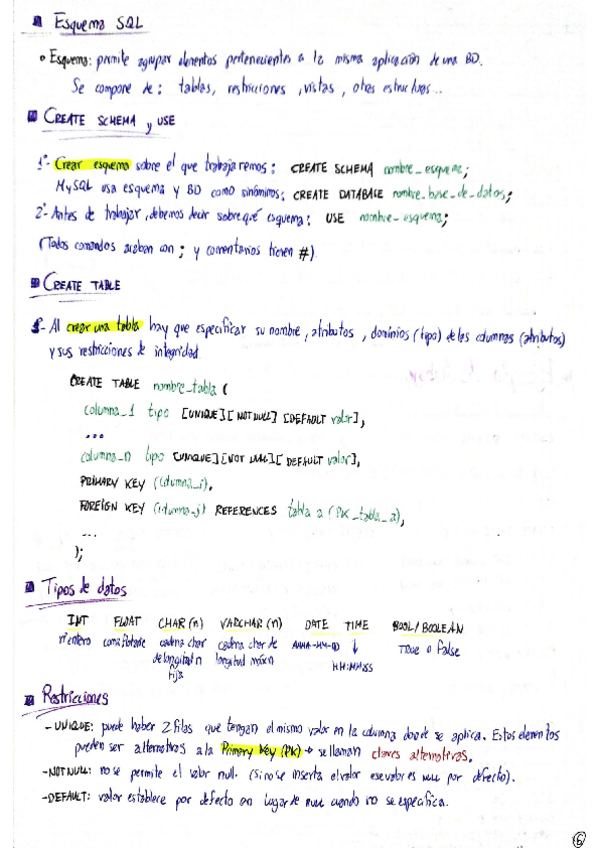 Esquema SQL
• Esquema: permite agrupar elementos pertenecientes a la misma aplicación de una BD.
Se compone de: tablas, restricciones, vistas, otras estructuras...
CREATE SCHEMA y USE
1º- Crear esquema sobre el que trabajaremos: CREATE SCHEMA nombre_esquema;
MySQL usa esquema y BD como sinónimos: CREATE DATABASE nombre_base_de_datos;
2º- Antes de trabajar, debemos decir sobre qué esquema: USE nombre_esquema;
(Todos comandos acaban con ; y comentarios tienen #)
CREATE TABLE
- Al crear una tabla hay que especificar su nombre, atributos, dominios (tipo) de las columnas (atributos)
y sus restricciones de integridad
CREATE TABLE nombre_tabla (
columna_1 tipo [UNIQUE][NOT NULL] [DEFAULT valor],
...
columna_n tipo [UNIQUE][NOT NULL][DEFAULT valor],
PRIMARY KEY (columna_i),
FOREIGN KEY (columna_j) REFERENCES tabla a (PK_tabla_a),
...
);
Tipos de datos
INT FLOAT CHAR (n) VARCHAR (n) DATE TIME BOOL/BOOLEAN
nº entero coma flotante cadena char cadena char de AAAA-MM-DD ↓ True o False
de longitud n longitud máx n HH:MM:SS
fija
Restricciones
- UNIQUE: puede haber 2 filas que tengan el mismo valor en la columna donde se aplica. Estos elementos
pueden ser alternativos a la Primary Key (PK) → se llaman claves alternativas.
- NOT NULL: no se permite el valor null. (si no se inserta el valor ese valor es null por defecto).
- DEFAULT: valor establece por defecto en lugar de null cuando no se especifica.
6